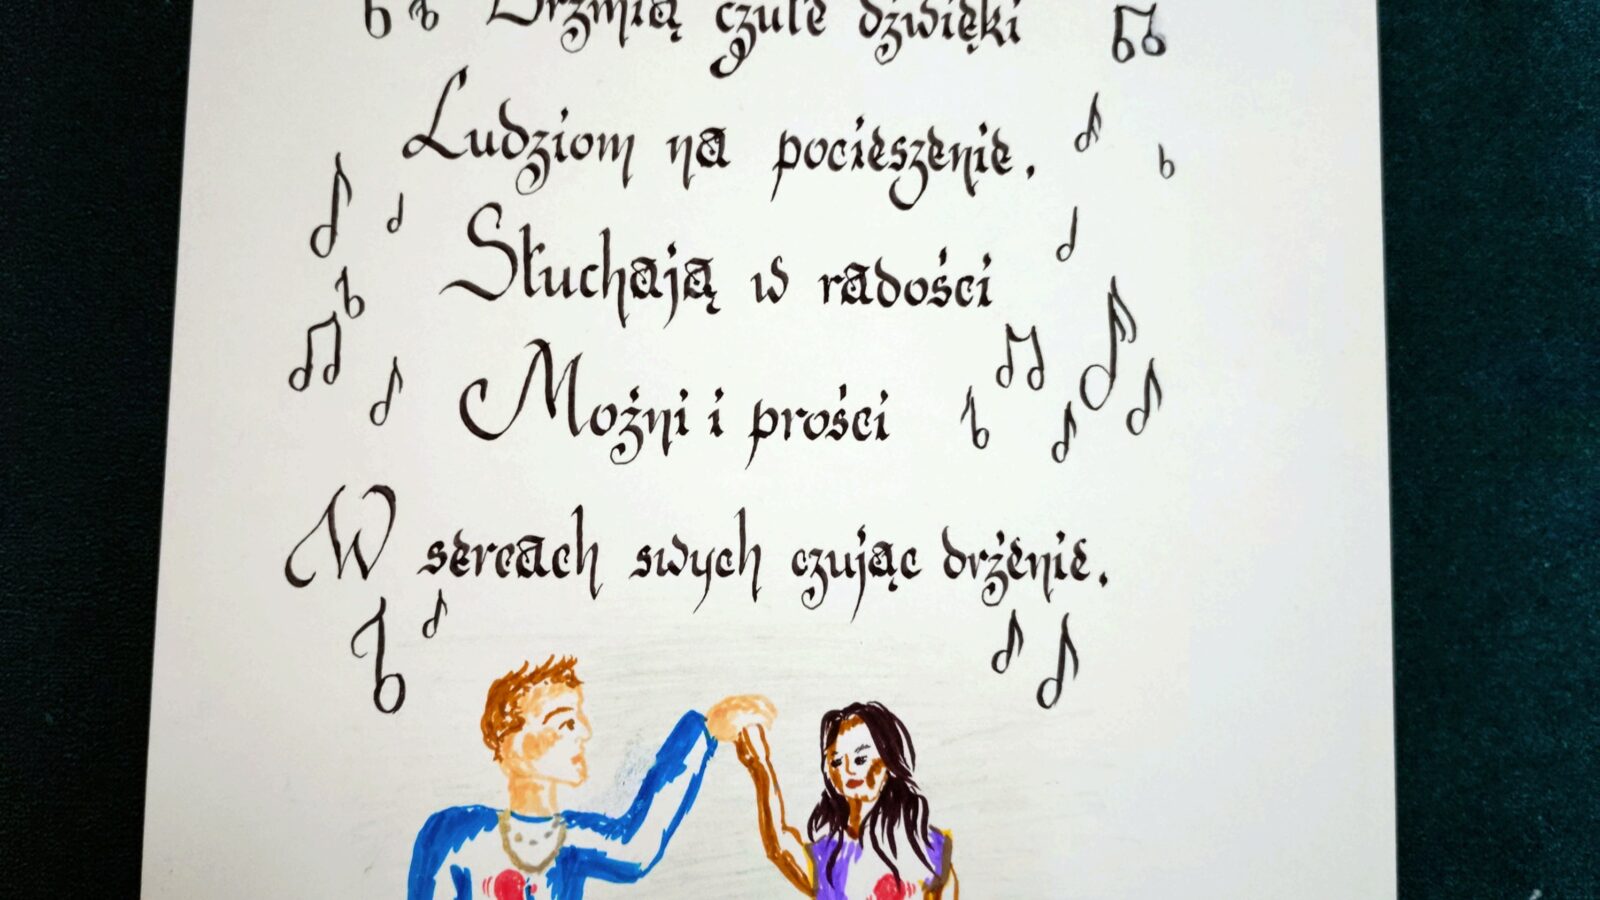 Brzmią czułe dźwięki
Ludziom na pocieszenie.
Słuchają w radości
Możni i prości
W sercach swych czując drżenie.